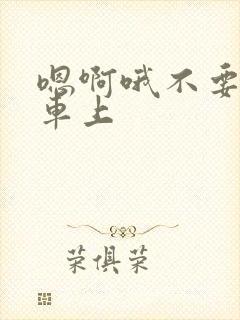 嗯啊哦不要
车上
荣俱荣